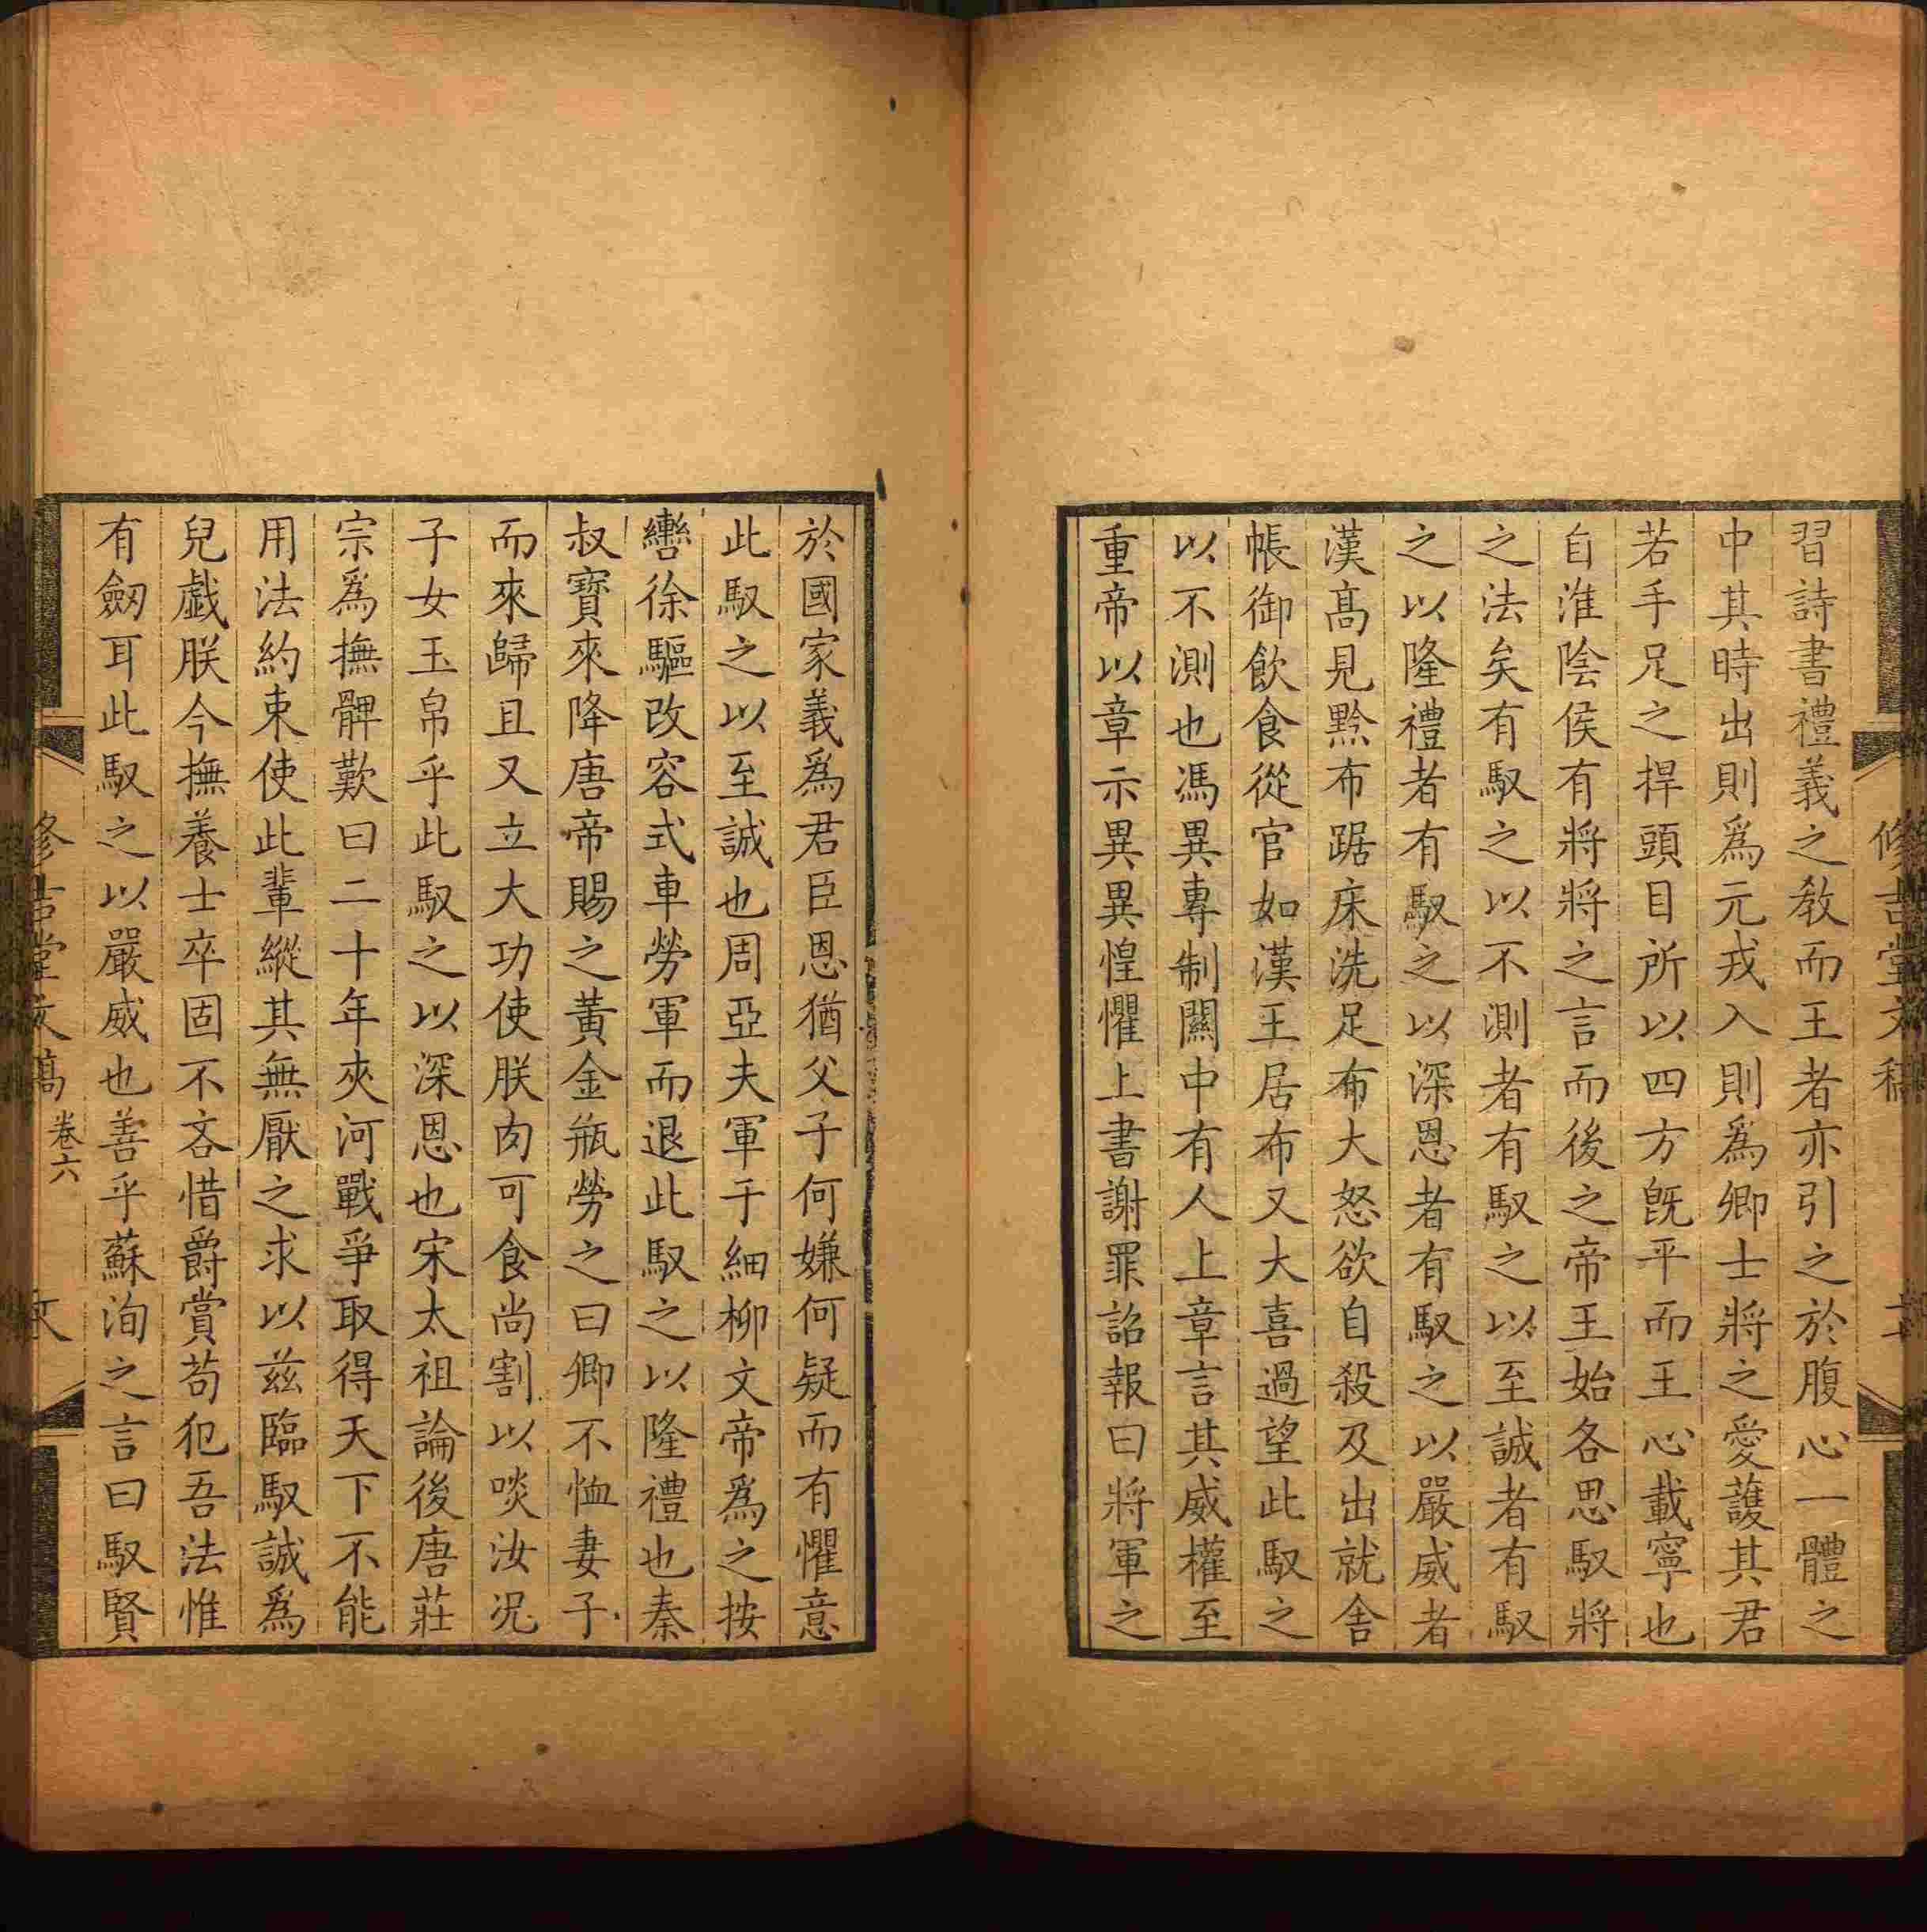 習詩書禮義之教而王者亦引之於腹心一體之
中其時出則爲元戎入則爲卿士將之愛護其君
若手足之捍頭目所以四方旣平而王心載寧也
自淮陰侯有將將之言而後之帝王始各思馭將
之法矣有馭之以不測者有馭之以至誠者有馭
之以隆禮者有馭之以深恩者有馭之以嚴威者
漢高見黥布踞床洗足布大怒欲自殺及出就舍
帳御飲食從官如漢王居布又大喜過望此馭之
以不測也馮異專制關中有人上章言其威權至
重帝以章示異異惶懼上書謝罪詔報曰將軍之
於國家義爲君臣恩猶父子何嫌何疑而有懼意
此馭之以至誠也周亞夫軍于細柳文帝爲之按
轡徐驅改容式車勞軍而退此馭之以隆禮也秦
叔寶來降唐帝賜之黃金瓶勞之曰卿不恤妻子
而來歸且又立大功使朕肉可食尚割以啖汝况
子女玉帛乎此馭之以深恩也宋太祖論後唐莊
宗爲撫髀歎曰二十年夾河戰爭取得天下不能
用法約束使此輩縱其無厭之求以兹臨馭誠爲
兒戯朕今撫養士卒固不吝惜爵賞苟犯吾法惟
有劒耳此馭之以嚴威也善乎蘇洵之言曰馭賢
卷六